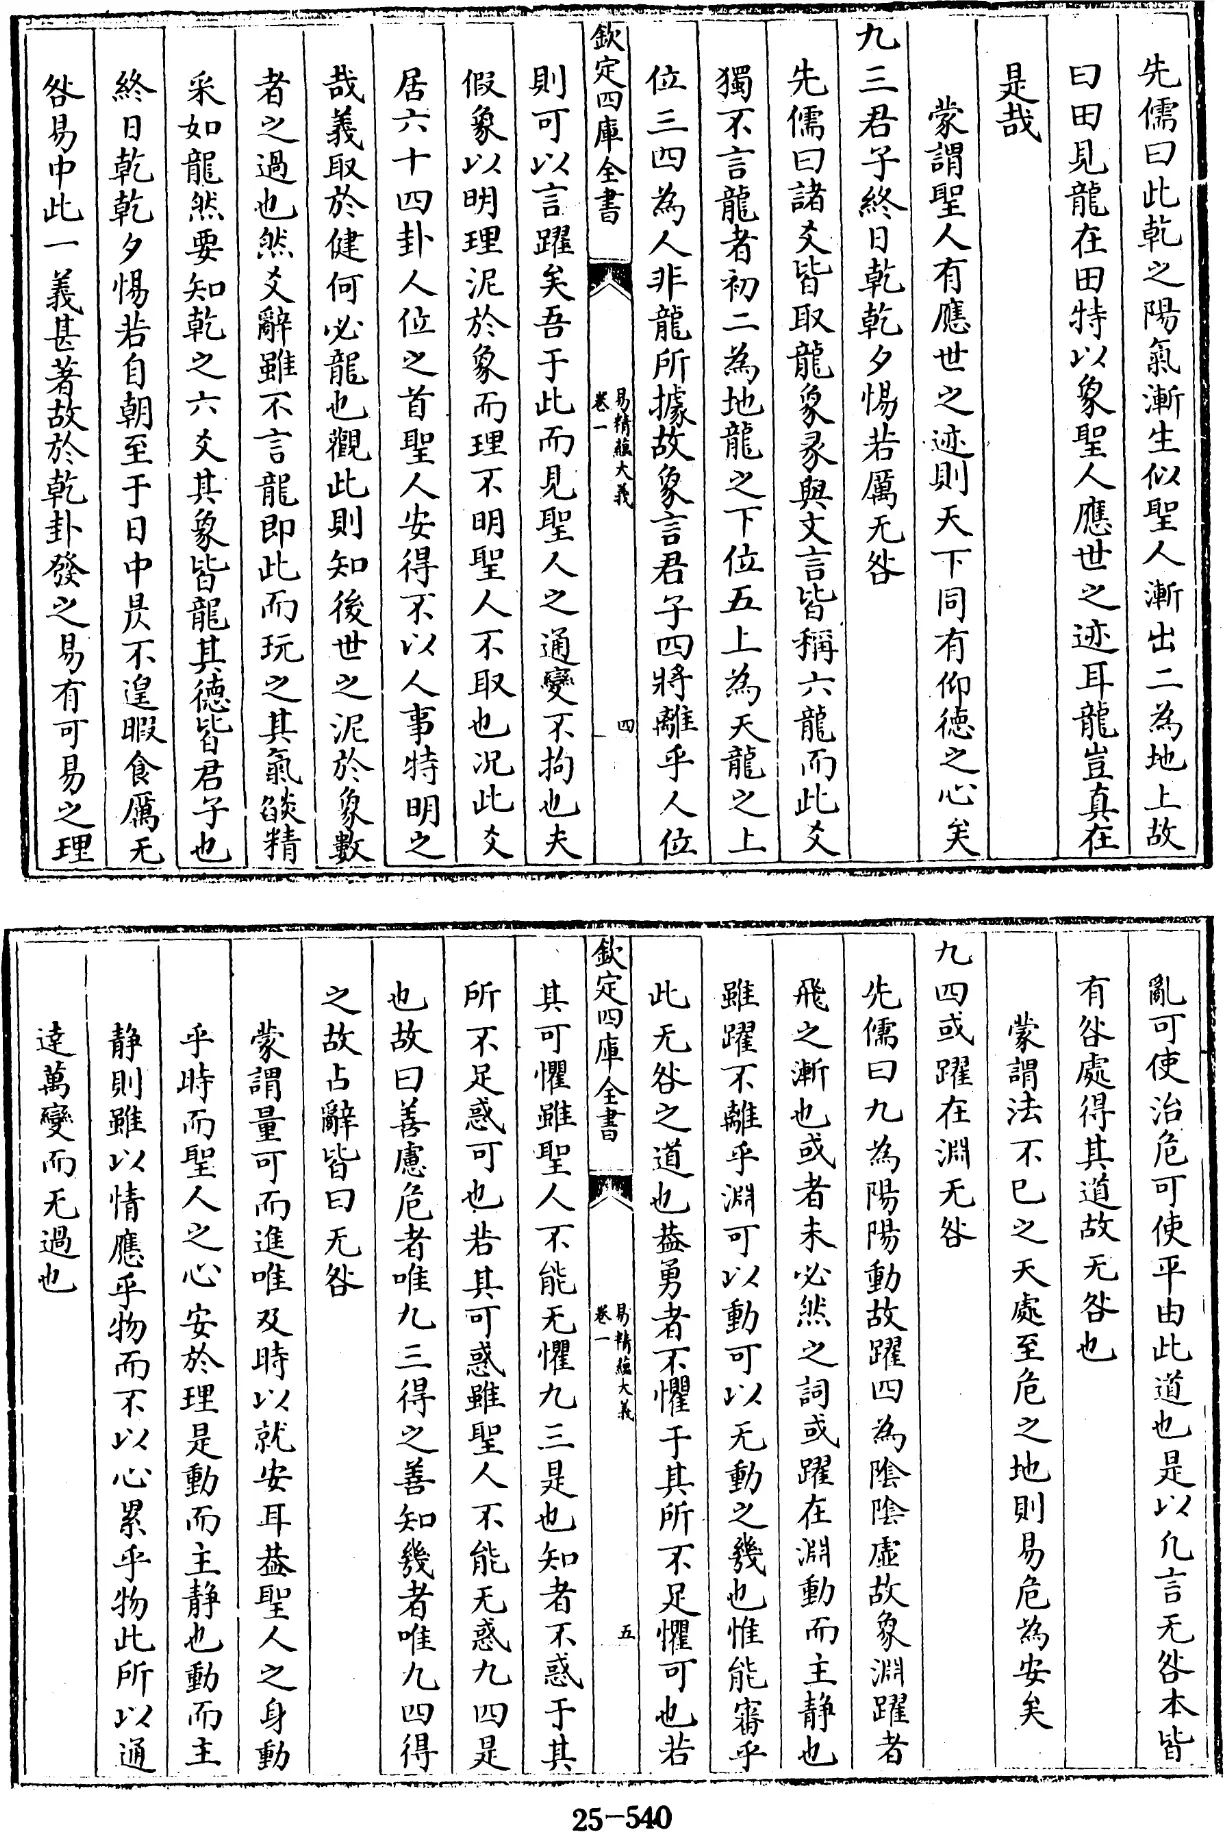 先儒曰此乾之陽氣漸生似聖人漸出二為地上故
曰田見龍在田特以象聖人應世之迹耳龍豈真在
是哉
蒙謂聖人有應世之迹則天下同有仰德之心矣
九三君子終日乾乾夕惕若厲无咎
先儒曰諸爻皆取龍象彖與文言皆稱六龍而此爻
獨不言龍者初二為地龍之下位五上為天龍之上
位三四為人非龍所據故象言君子四將離乎人位
欽定四庫全書
易精蘊大義
卷一
四
則可以言躍矣吾于此而見聖人之通變不拘也夫
假象以明理泥於象而理不明聖人不取也況此爻
居六十四卦人位之首聖人安得不以人事特明之
哉義取於健何必龍也觀此則知後世之泥於象數
者之過也然爻辭雖不言龍即此而玩之其氣燄精
采如龍然要知乾之六爻其象皆龍其德皆君子也
終日乾乾夕惕若自朝至于日中昃不遑暇食厲无
咎易中此一義甚著故於乾卦發之易有可易之理
亂可使治危可使平由此道也是以凡言无咎本皆
有咎處得其道故无咎也
蒙謂法不已之天處至危之地則易危為安矣
九四或躍在淵无咎
先儒曰九為陽陽動故躍四為陰陰虛故象淵躍者
飛之漸也或者未必然之詞或躍在淵動而主靜也
雖躍不離乎淵可以動可以无動之幾也惟能審乎
此无咎之道也葢勇者不懼于其所不足懼可也若
欽定四庫全書
易精蘊大義
卷一
五
其可懼雖聖人不能无懼九三是也知者不惑于其
所不足惑可也若其可惑雖聖人不能无惑九四是
也故曰善慮危者唯九三得之善知幾者唯九四得
之故占辭皆曰无咎
蒙謂量可而進唯及時以就安耳葢聖人之身動
乎時而聖人之心安於理是動而主靜也動而主
靜則雖以情應乎物而不以心累乎物此所以通
達萬變而无過也
25-540